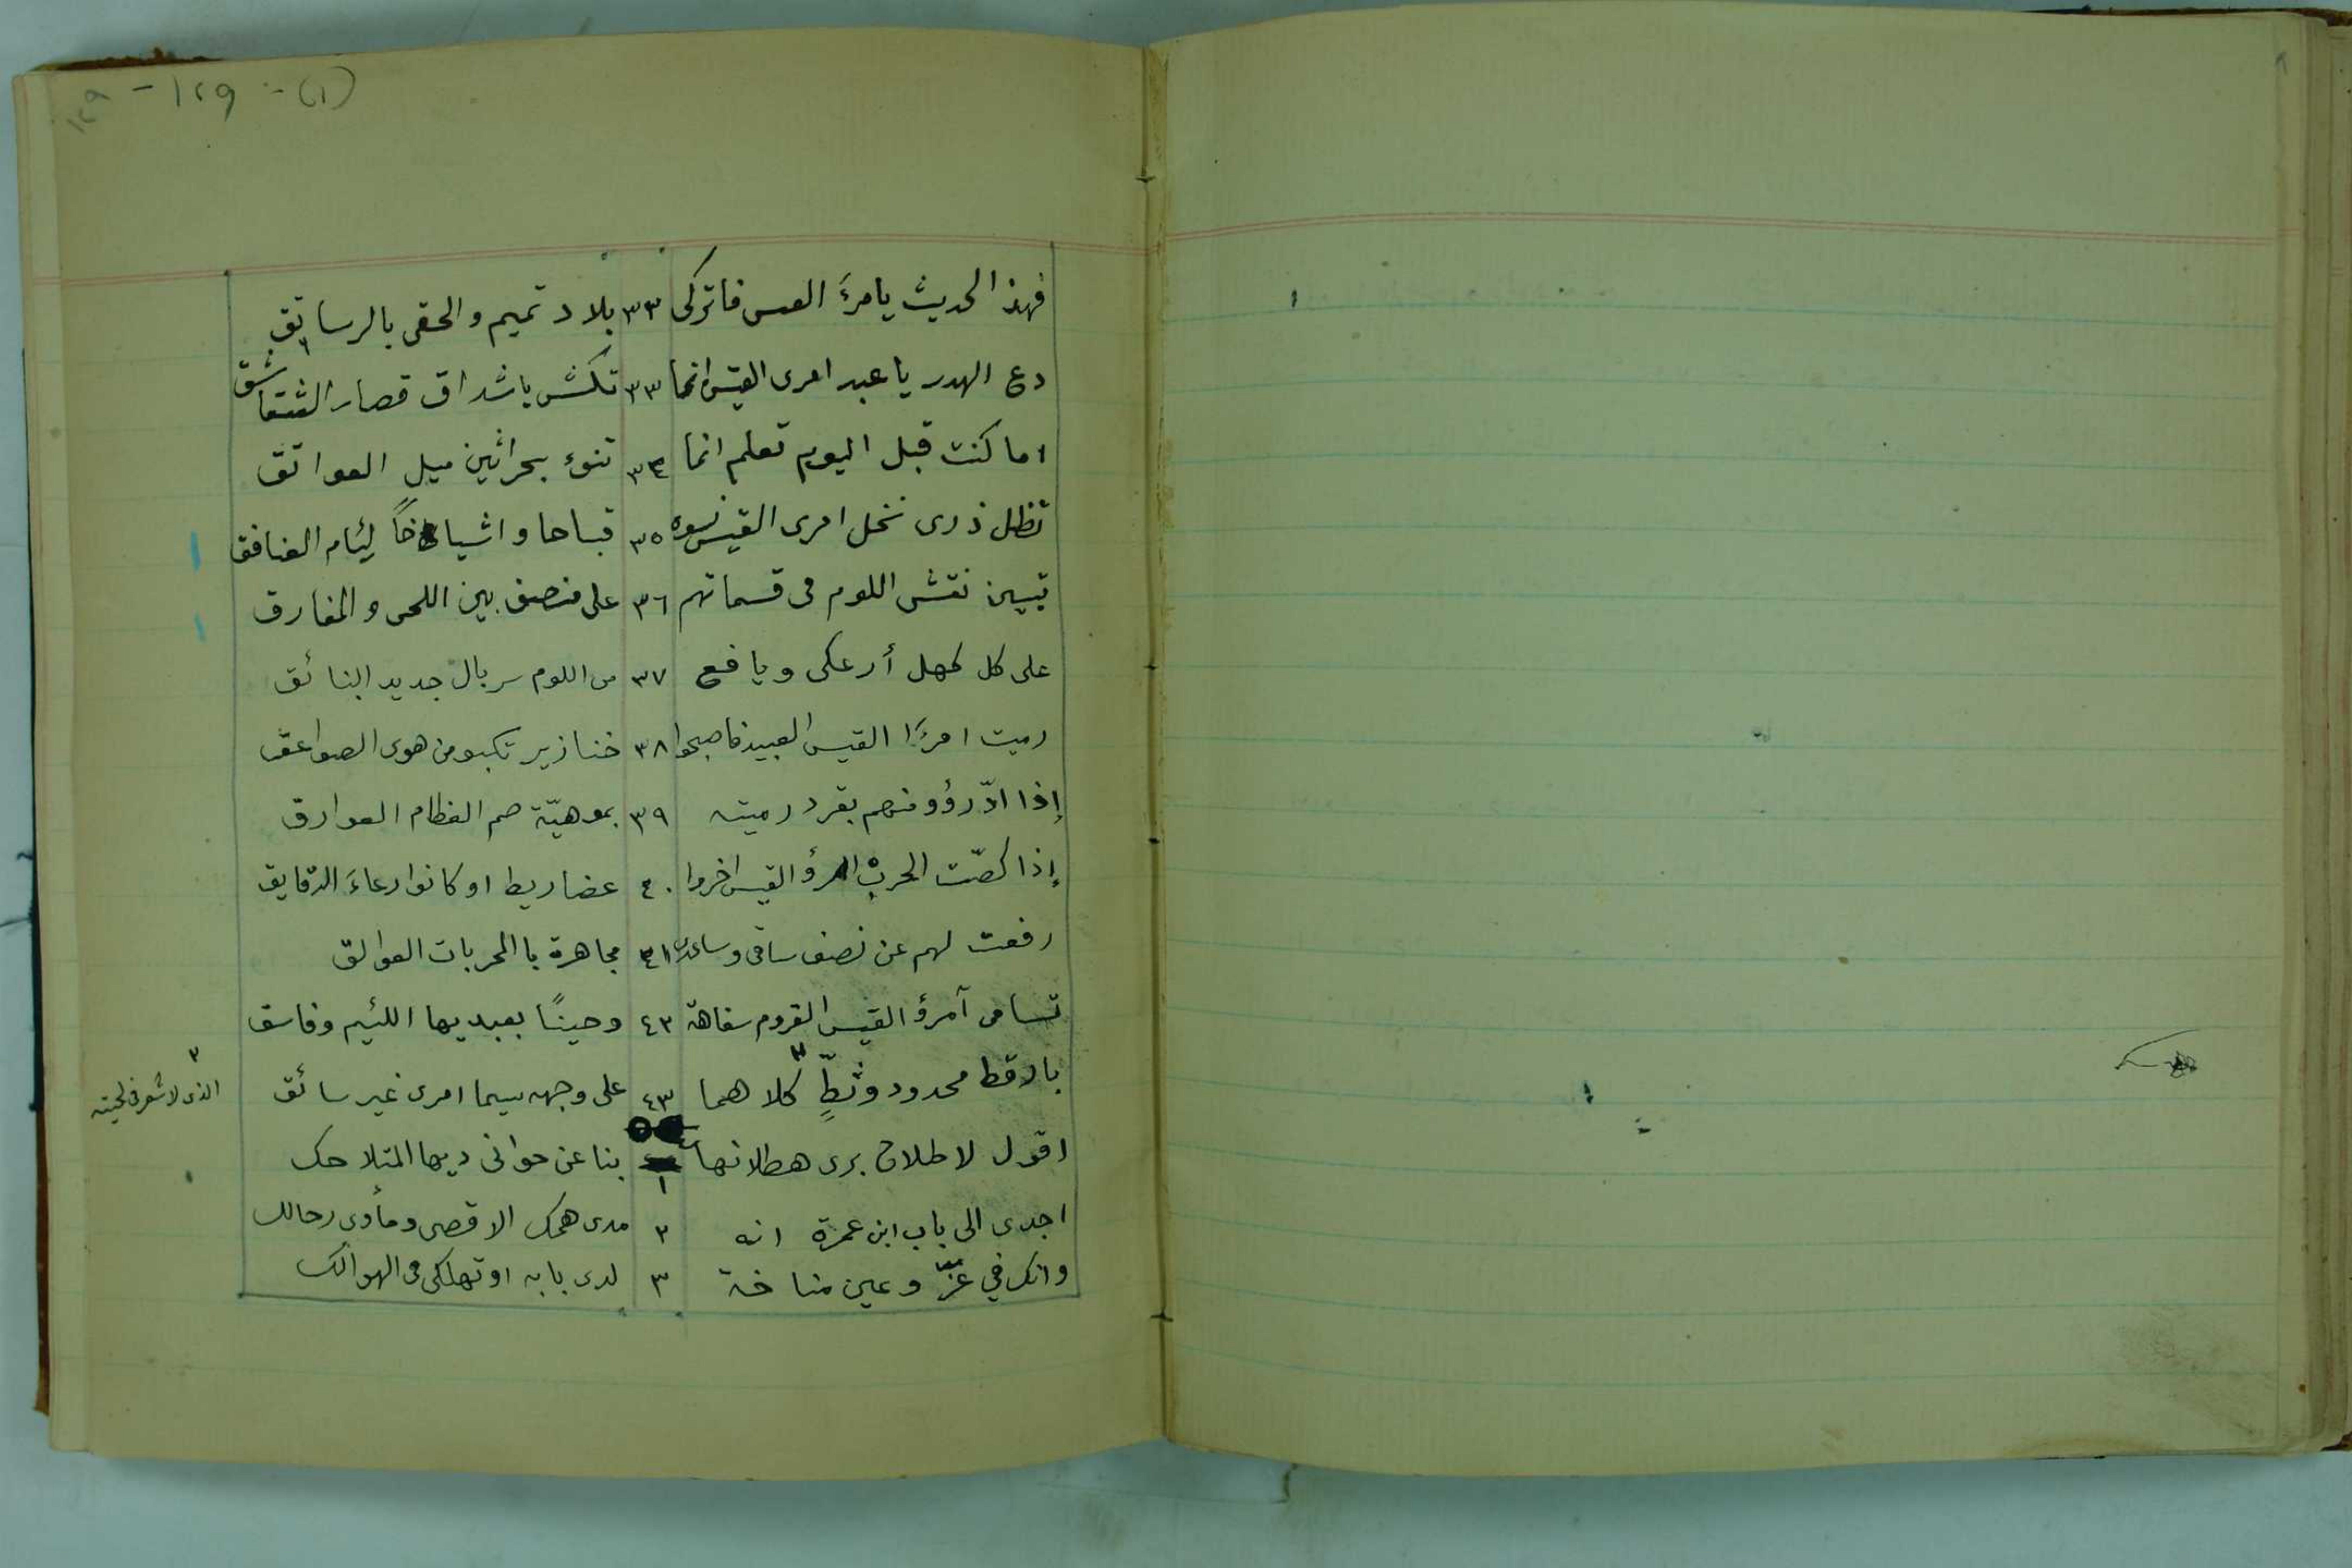 (١) - ١٢٩ - ١٢٩
فهذا الحديث يا مرءَ القيس فاتركى ٣٣ بلاد تميم والحقى بالرساتق
دع الهدر يا عبد امرى القيس انما ٣٣ تكشّ باشداق قصار الشقاشق
اما كنت قبل اليوم تعلم انما ٣٤ تنوء بحراثين ميل العواتق
تظل ذرى نخل امرى القيس نسوة ٣٥ قباحا واشياخاً لئام العنافق
تبين نقش اللوم فى قسماتهم ٣٦ على منصف بين اللحى والمفارق
على كل كهل أزعكى ويافع ٣٧ من اللوم سربال جديد البنائق
رميت امرَءَ القيس العبيد فاصبحوا ٣٨ خنازير تكبو من هوى الصواعق
إذا ادّرؤو منهم بقرد رميته ٣٩ بموهيّة صم العظام العوارق
إذا كصّت الحرب امرؤ القيس اخروا ٤٠ عضاريط او كانوا رعاءَ الدقايق
رفعت لهم عن نصف ساقى وساعدى ٤١ مجاهرة باالمحربات العوالق
تسامى آمرؤ القيس القروم سفاهة ٤٣ وحينًا بعبديها اللئيم وفاسق
بارقط محدود وثطٍّ ٣ كلاهما ٤٣ على وجهه سيما امرى غير سائق
٣ الذى لا شعر فى لحيته
اقول لاطلاح برى هطلانها ١ بنا عن حوانى ديها المتلاحك
اجدى الى باب ابن عمرة انه ٢ مدى همك الاقصى ومأوى رحالك
وانك في عزّ وعين مناخة ٣ لدى بابه او تهلكى فى الهوالك